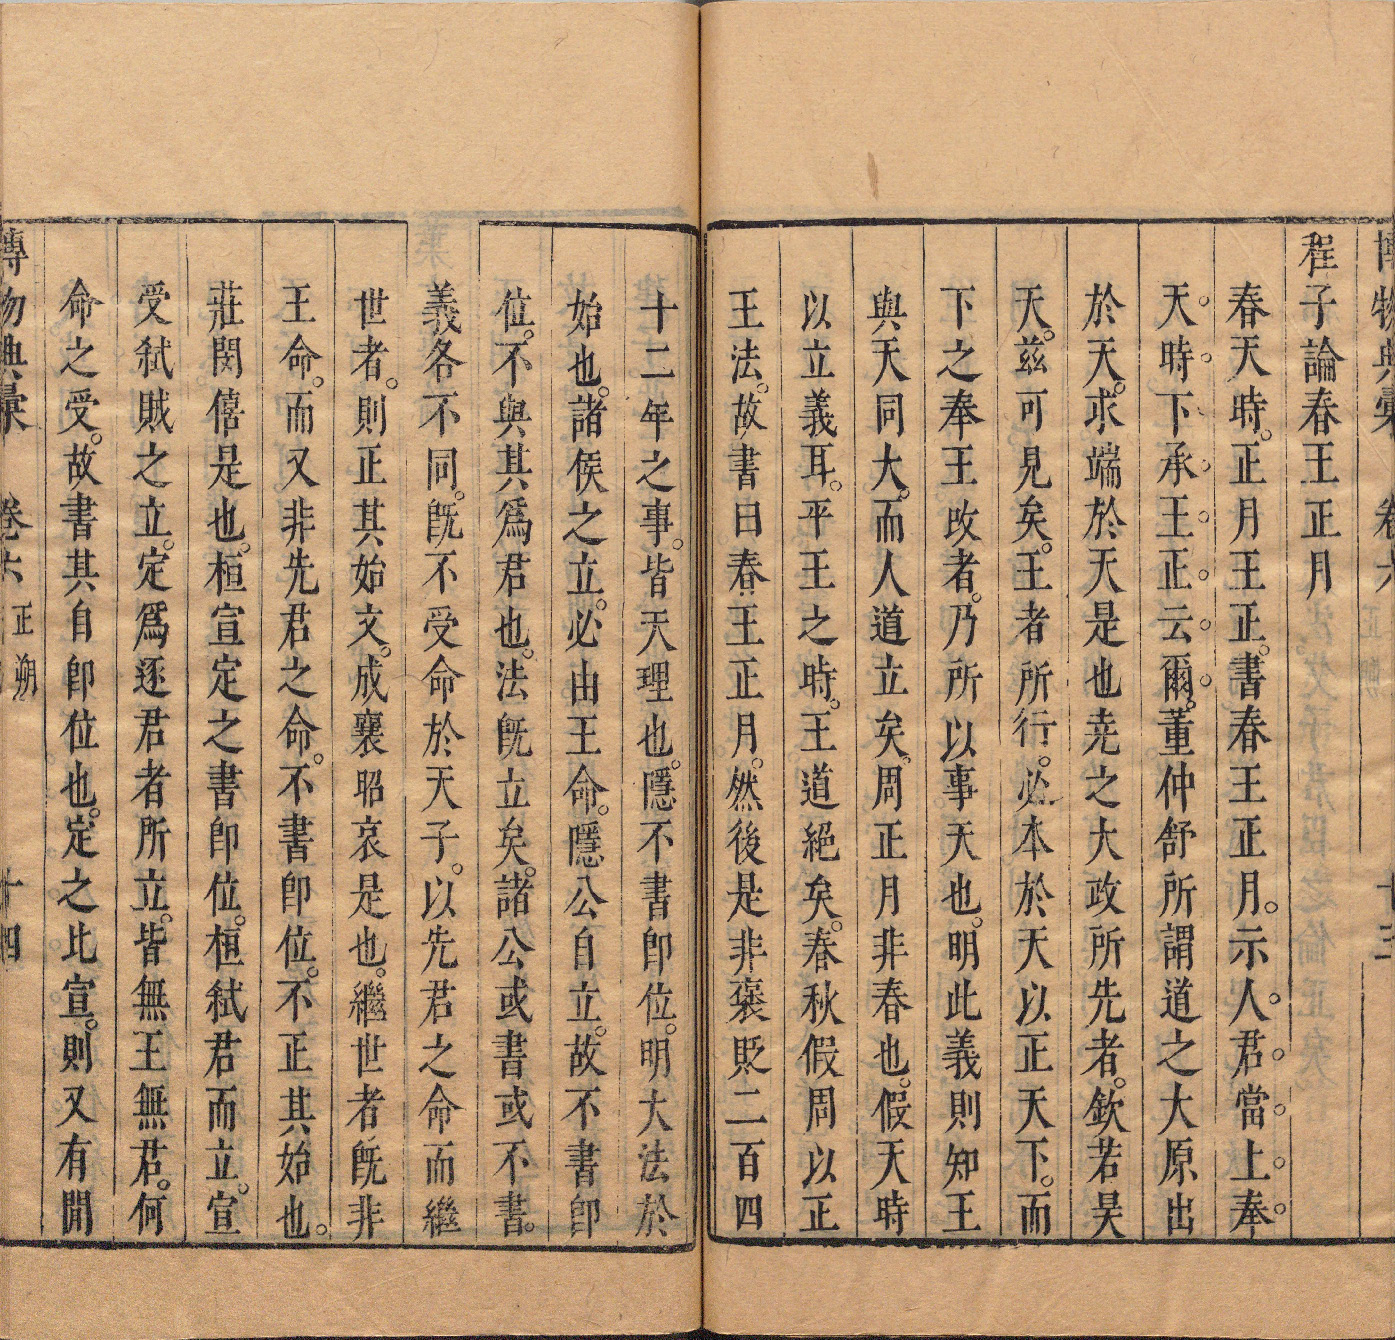 博物典彙 卷六 十三
程子論春王正月
春天時。正月王正。書春王正月。示人君當上奉
天時下承王正云爾。董仲舒所謂道之大原出
於天。求端於天是也尭之大政所先者。欽若昊
天。茲可見矣。王者所行。必本於天以正天下。而
下之奉王政者。乃所以事天也。明此義則知王
與天同大。而人道立矣。周正月非春也。假天時
以立義耳。平王之時。王道絕矣。春秋假周以正
王法。故書曰春王正月。然後是非褒貶二百四
十二年之事。皆天理也。隱不書卽位。明大法於
始也。諸侯之立。必由王命。隱公自立。故不書卽
位。不與其爲君也。法旣立矣。諸公或書或不書。
義各不同。旣不受命於天子。以先君之命而繼
世者。則正其始文。成襄昭哀是也。繼世者旣非
王命。而又非先君之命。不書卽位。不正其始也。
莊閔僖是也。桓宣定之書卽位。桓弑君而立。宣
受弑賊之立。定爲逐君者所立。皆無王無君。何
命之受。故書其自卽位也。定之比宣。則又有閒
博物典彙 卷六 正朔 十四